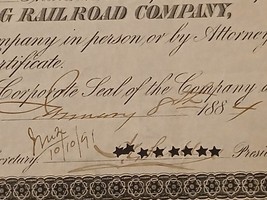 G RAIL ROAD COMPANY,
ompany in person, or by Attorney
ertificate.
Corporate Seal of the Company
January 8th 1884
10/10/91
cretary
Presi